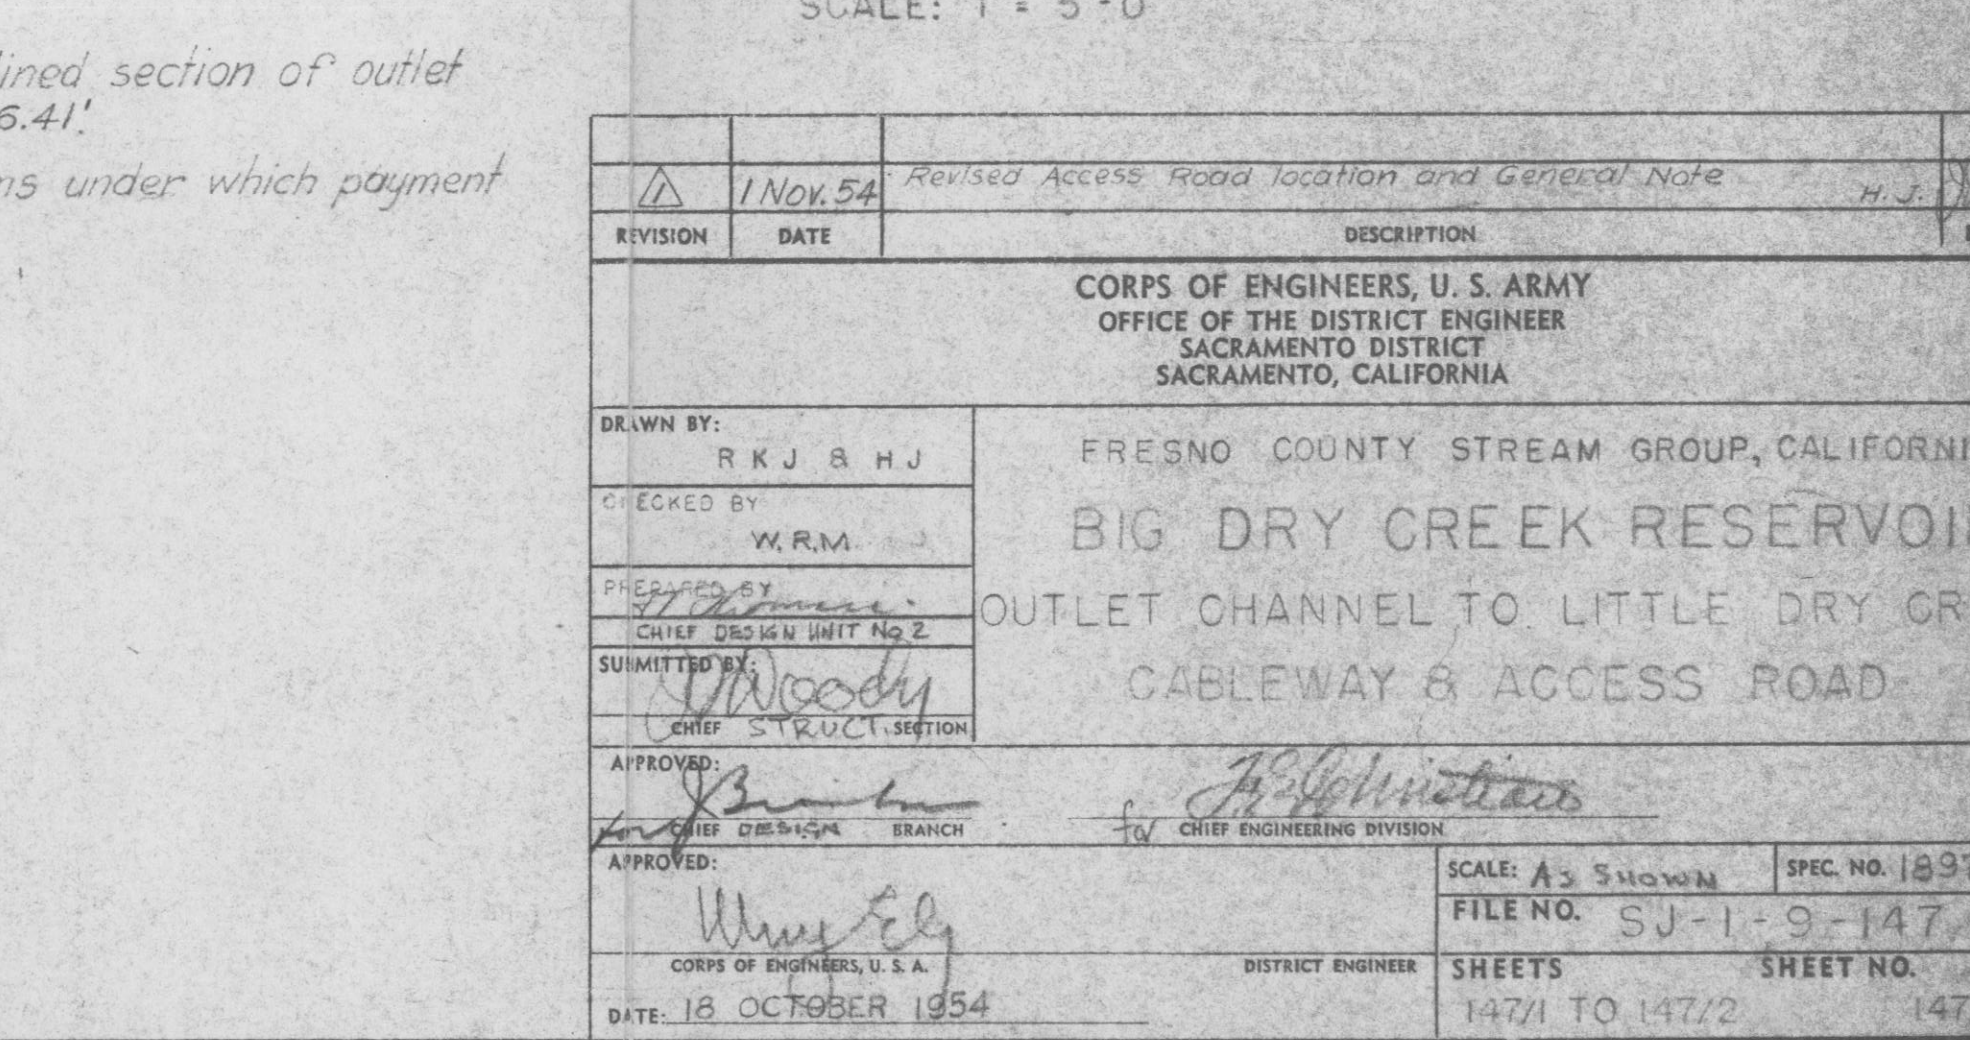 SCALE: 1 = 5-0
ined section of outlet
6.41'.
ns under which payment
1 1 Nov. 54 Revised Access Road location and General Note H. J.
REVISION DATE DESCRIPTION
CORPS OF ENGINEERS, U. S. ARMY
OFFICE OF THE DISTRICT ENGINEER
SACRAMENTO DISTRICT
SACRAMENTO, CALIFORNIA
DRAWN BY:
R K J & H J
CHECKED BY
W.R.M.
PREPARED BY
CHIEF DESIGN UNIT No 2
SUBMITTED BY:
Woody
CHIEF STRUCT. SECTION
FRESNO COUNTY STREAM GROUP, CALIFORNI
BIG DRY CREEK RESERVOI
OUTLET CHANNEL TO LITTLE DRY CR
CABLEWAY & ACCESS ROAD
APPROVED:
for CHIEF DESIGN BRANCH
for CHIEF ENGINEERING DIVISION
APPROVED:
CORPS OF ENGINEERS, U. S. A. DISTRICT ENGINEER
DATE: 18 OCTOBER 1954
SCALE: AS SHOWN SPEC. NO. 1897
FILE NO. SJ-1-9-147/
SHEETS SHEET NO.
147/1 TO 147/2 147